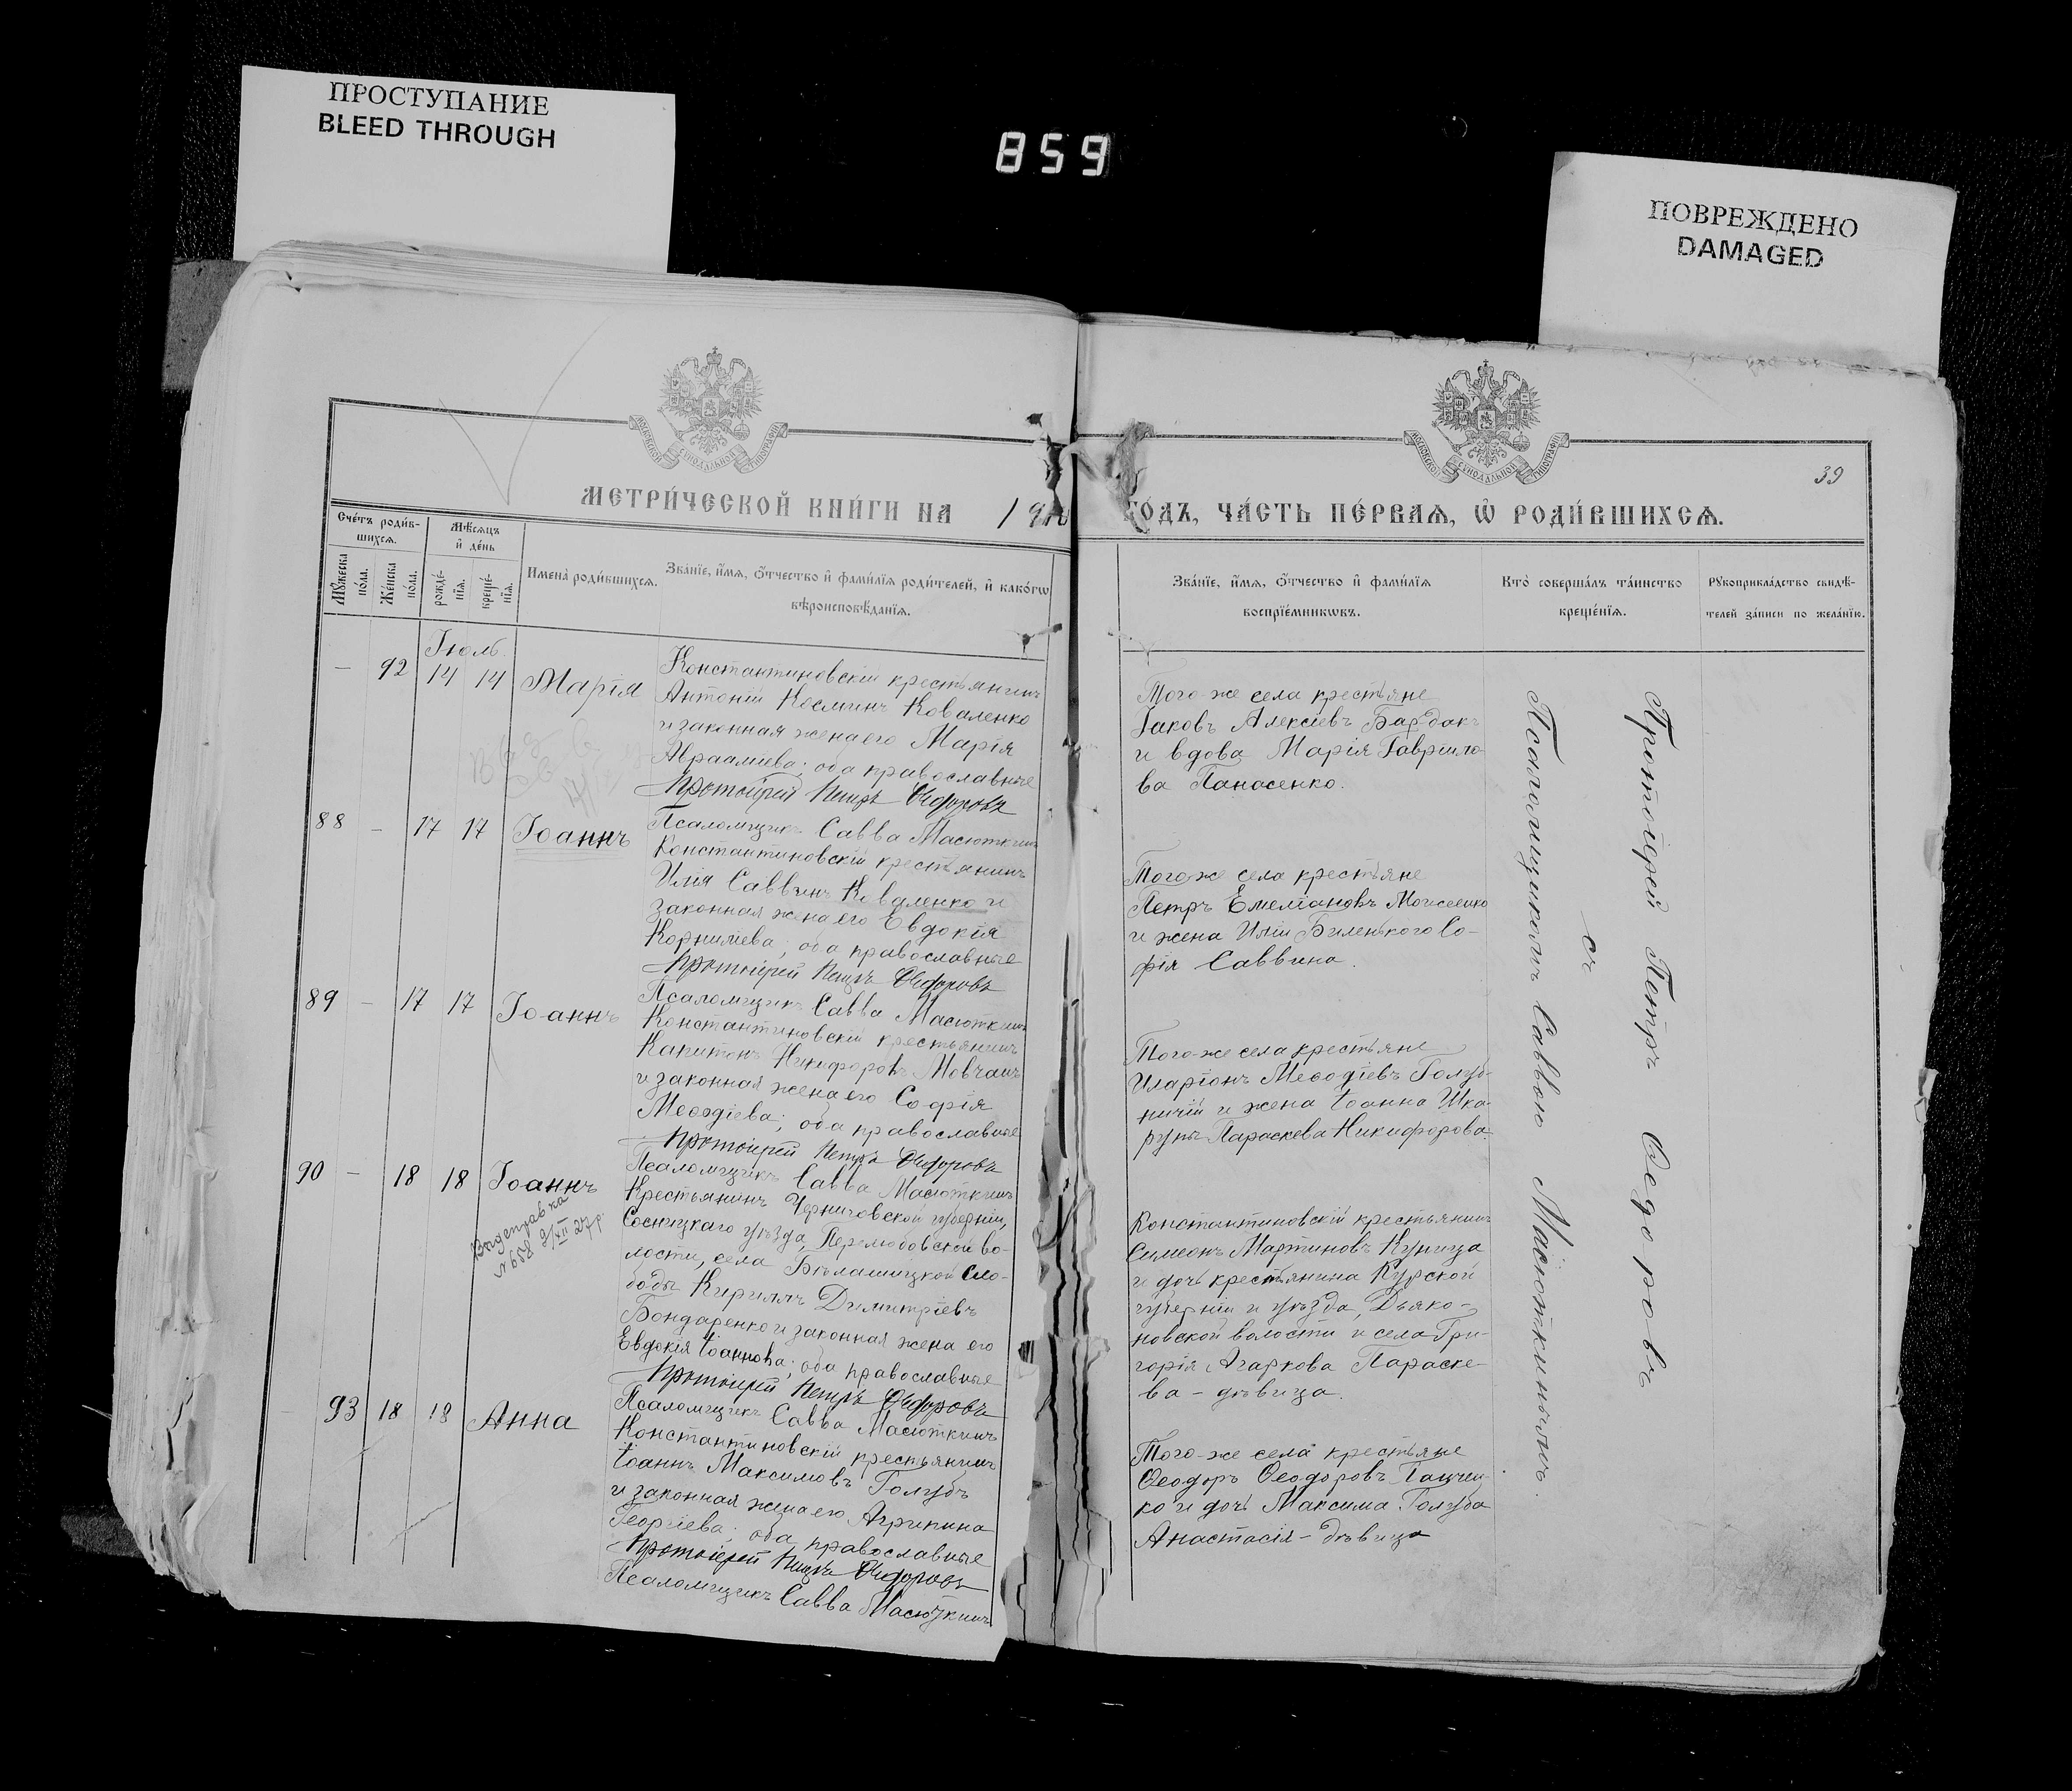 ПРОСТУПАНИЕ
BLEED THROUGH
859
ПОВРЕЖДЕНО
DAMAGED
МОСКОВСКОЙ СѴНОДАЛЬНОЙ ТИПОГРАФІИ
МОСКОВСКОЙ СѴНОДАЛЬНОЙ ТИПОГРАФІИ
39
МЕТРИ́ЧЕСКОЙ КНИ́ГИ НА 19
ГО́ДЪ, ЧА́СТЬ ПЕ́РВАѦ, Ѡ҆ РОДИ́ВШИХСѦ.
Сче́тъ роди́в-
шихсѧ.
Мꙋ́жеска
по́ла.
Же́нска
по́ла.
Мѣ́сѧцъ
и҆ де́нь
рожде́-
нїѧ.
креще́-
нїѧ.
Имена̀ роди́вшихсѧ.
Зва́нїе, и҆́мѧ, ѻ҆́тчество и҆ фами́лїѧ роди́телей, и҆ како́гѡ
вѣроисповѣ́данїѧ.
Зва́нїе, и҆́мѧ, ѻ҆́тчество и҆ фами́лїѧ
воспрїе́мникѡвъ.
Кто̀ соверша́лъ та́инство
креще́нїѧ.
Рꙋкоприкла́дство свидѣ́-
телей за́писи по жела́нїю.
Іюль
— 92 14 14 Марія
Константиновскій крестьянинъ
Антоній Косминъ Коваленко
и законная жена его Марія
Авраамiева; оба православные
Протоіерей Петръ Ѳедоровъ
Псаломщикъ Савва Масюткинъ
Того-же села крестьяне
Іаковъ Алексіевъ Бардакъ
и вдова Марія Гаврило-
ва Панасенко.
88 — 17 17 Іоаннъ
Константиновскій крестьянинъ
Илія Саввинъ Коваленко и
законная жена его Евдокія
Корниліева; оба православные
Протоіерей Петръ Ѳедоровъ
Псаломщикъ Савва Масюткинъ
Того-же села крестьяне
Петръ Емеліановъ Моисеенко
и жена Иліи Биленького Со-
фія Саввина.
89 — 17 17 Іоаннъ
Константиновскій крестьянинъ
Капитонъ Никифоровъ Мовчанъ
и законная жена его Софія
Меѳодіева; оба православные
Протоіерей Петръ Ѳедоровъ
Псаломщикъ Савва Масюткинъ
Того-же села крестьяне
Иларіонъ Меѳодіевъ Голуб-
ничій и жена Іоанна Шка-
рупы Параскева Никифорова.
90 — 18 18 Іоаннъ
№ 658 9/XII 27 р.
Крестьянинъ Черниговской губерніи,
Сосницкаго уѣзда, Перелюбовской во-
лости, села Бѣлашицкой Сло-
боды Кириллъ Димитріевъ
Бондаренко и законная жена его
Евдокія Іоаннова; оба православные
Протоіерей Петръ Ѳедоровъ
Псаломщикъ Савва Масюткинъ
Константиновскій крестьянинъ
Симеонъ Мартиновъ Куница
и дочь крестьянина Курской
губерніи и уѣзда, Дьяко-
новской волости и села Гри-
горія Агаркова Параске-
ва - дѣвица.
— 93 18 18 Анна
Константиновскій крестьянинъ
Іоаннъ Максимовъ Голубъ
и законная жена его Агрипина
Георгіева; оба православные
Протоіерей Петръ Ѳедоровъ
Псаломщикъ Савва Масюткинъ
Того-же села крестьяне
Ѳеодоръ Ѳеодоровъ Пащен-
ко и дочь Максима Голуба
Анастасія - дѣвица
Протоіерей Петръ Ѳедоровъ
съ
Псаломщикомъ Саввою Масюткинымъ.